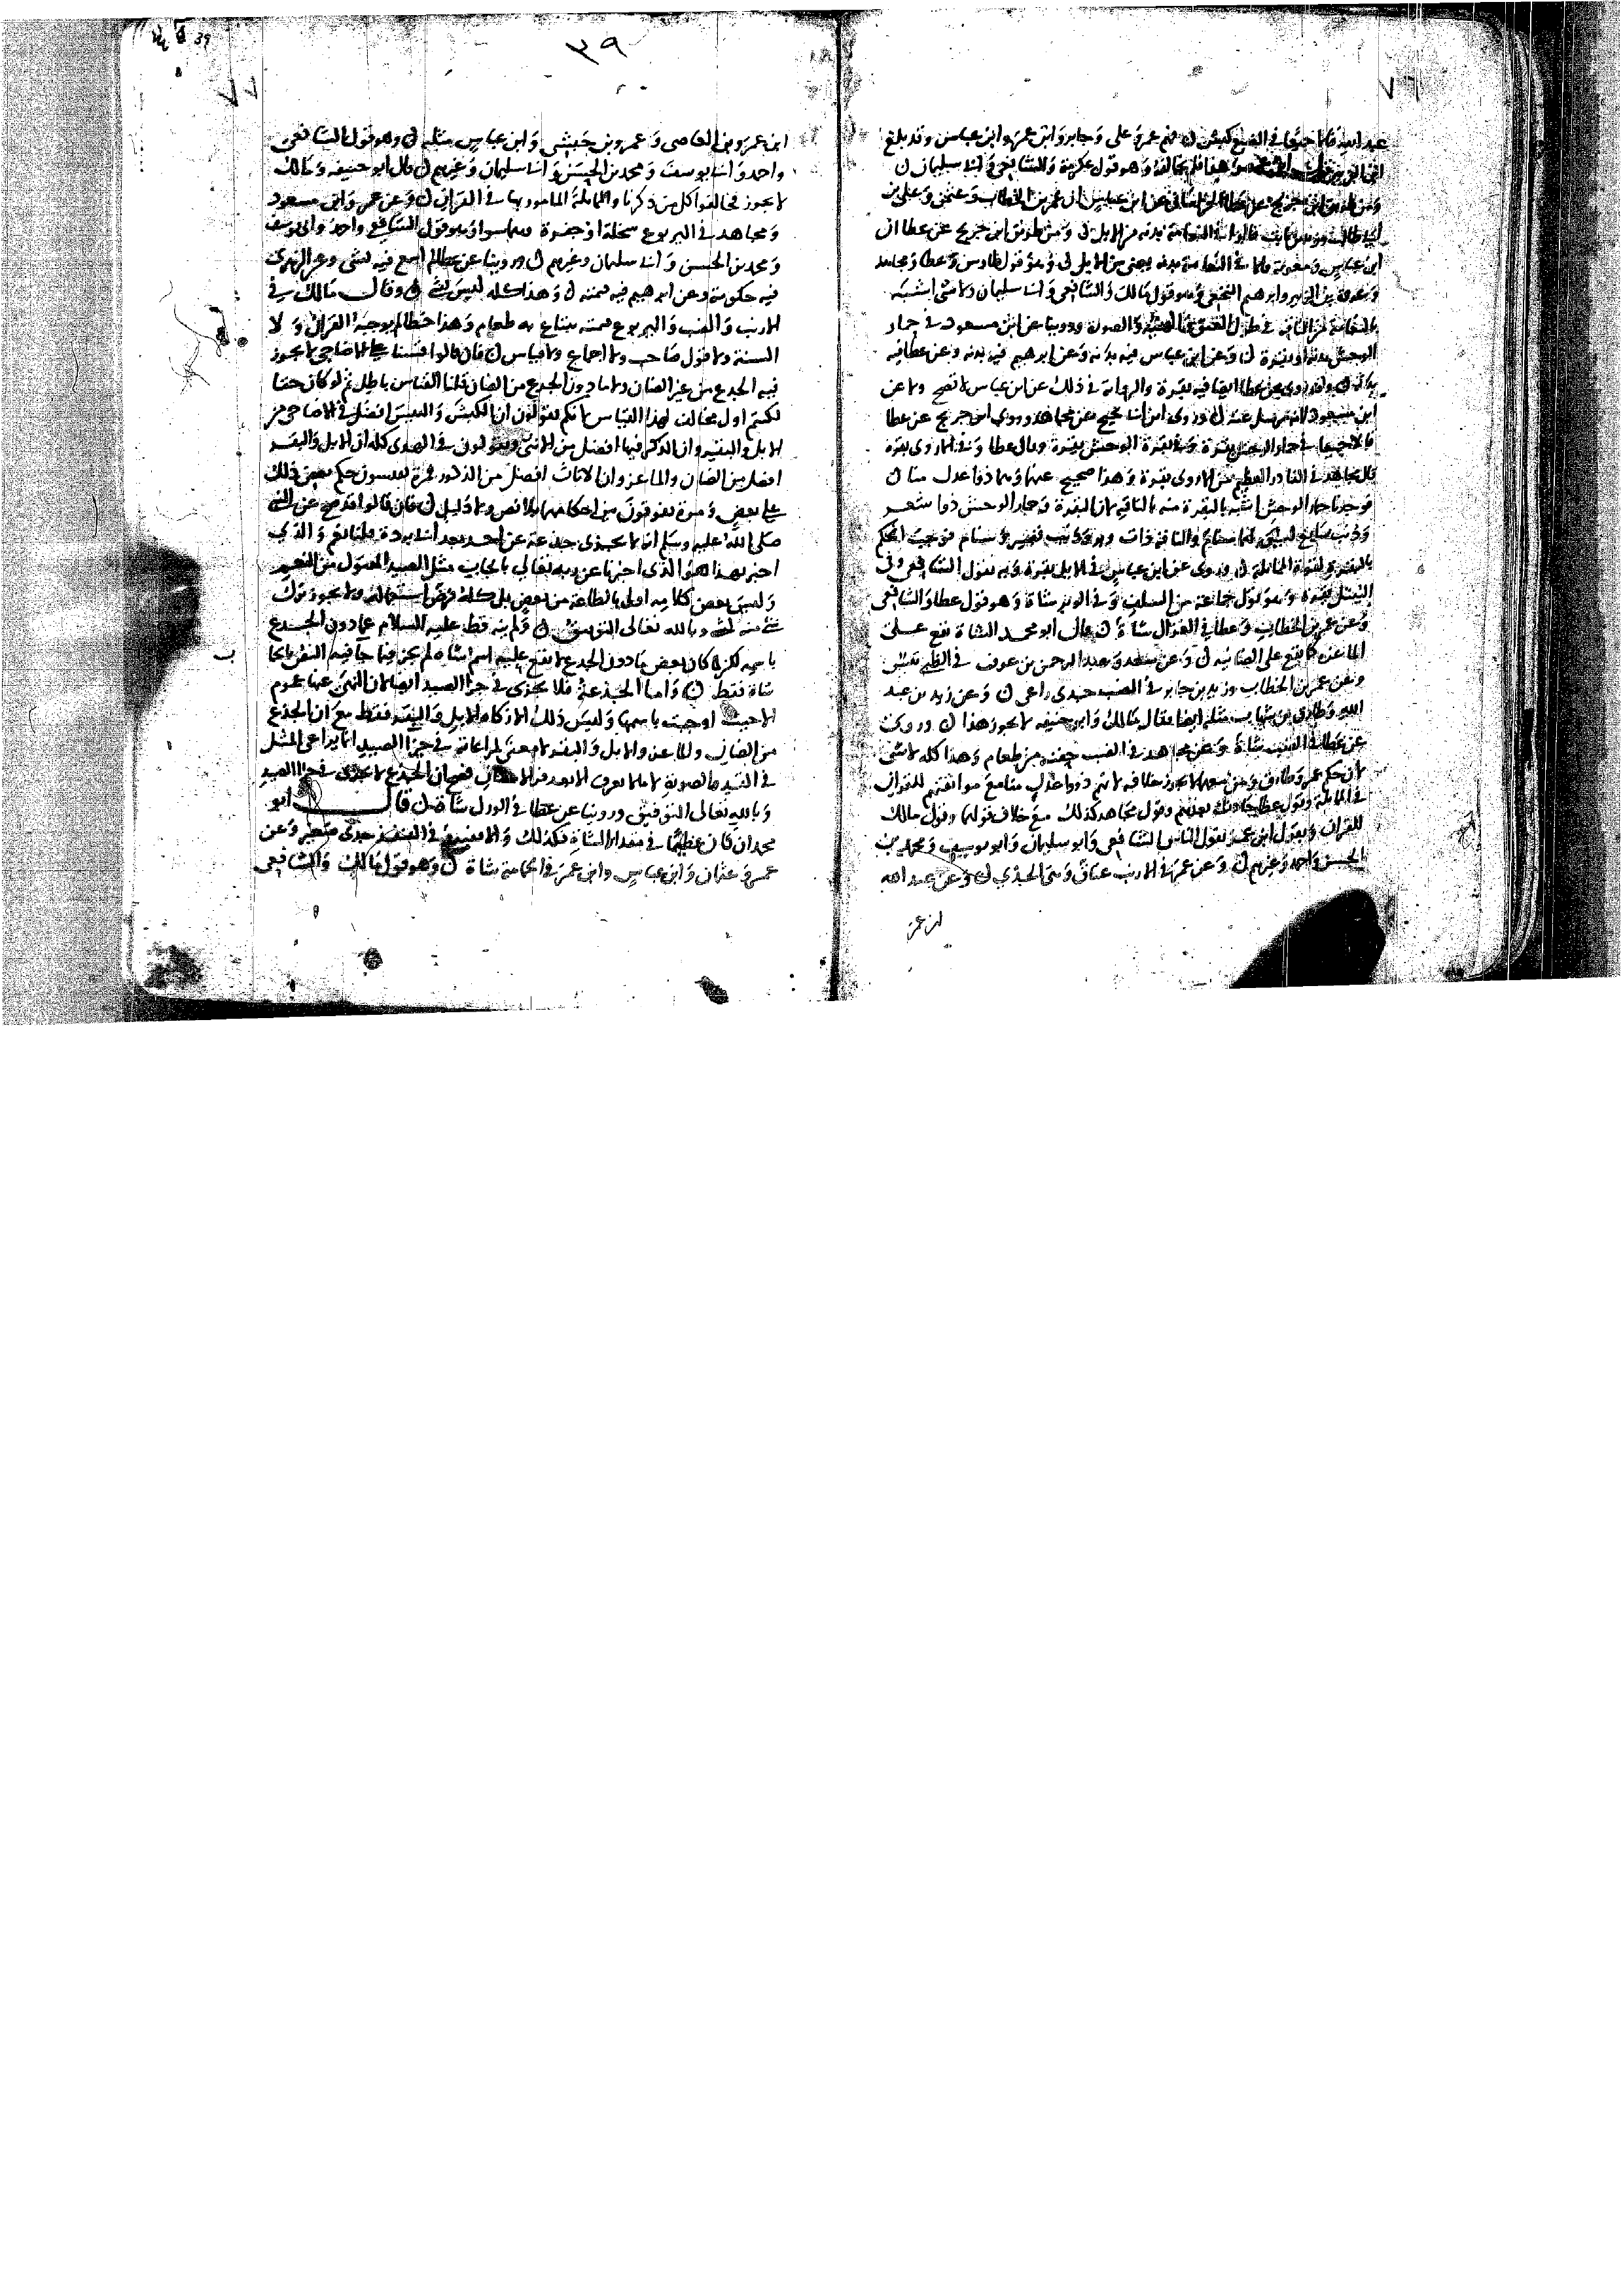 عبد الله قالا جميعا في الضبع كبش ن فهم عمر وعلى وجابر وابن عمر وابن عباس وقد بلغ
ابن الزبير وهو قول عكرمة والشافعي وابي سليمان ن
ومن طريق ابن جريج عن عطا الخراساني عن ابن عباس ان عمر بن الخطاب وعثمن وعلى بن
ابي طالب وزيد بن ثابت قالوا في النعامة بدنه من الابل ن ومن طريق ابن جريج عن عطا ان
ابن عباس ومعوية قالا في النعامة بدنه يعني من الابل ن وهو قول طاوس وعطا ومجاهد
وعروة بن الزبير وابرهيم النخعي وهو قول مالك والشافعي وابي سليمان ولا شي اشبه
بالنعامة من الناقة في طول العنق والهيئة والصورة وروينا عن ابن مسعود في حمار
الوحش بدنه او بقرة ن وعن ابن عباس فيه بدنه وعن ابرهيم فيه بدنه وعن عطا فيه
ايضا فيه بقرة والرواية في ذلك عن ابن عباس لا تصح ولا عن
ابن مسعود لانه مرسل عنه ن وروى ابن ابي نجيح عن مجاهد وروى ابن جريج عن عطا
قالا جميعا في حمار الوحش بقرة وفي بقرة الوحش بقرة وقال عطا وفي الاروى بقرة
قال مجاهد في الفادر العظيم من الاروى بقرة وهذا صحيح عنهما وهما ذوا عدل منا ن
فوجدنا حمار الوحش اشبه بالبقرة منه بالناقة لان البقرة وحمار الوحش ذوا شعر
وذنب سابغ ليس لهما سنام والناقة ذات وبر وذنب قصير وسنام فوجب الحكم
بالبقرة لقوة المماثلة ن وروى عن ابن عباس في الايل بقرة وبه نقول الشافعي وفي
الثيتل بقرة وهو قول جماعة من السلف وفي الوبر شاة وهو قول عطا والشافعي
وعن عمر بن الخطاب وعطا في الغزال شاة ن قال ابو محمد الشاة تقع على
الماعزه كما تقع على الضانيه ن وعن سعد وعبد الرحمن بن عوف في الظبي تيس
وعن عمر بن الخطاب وزيد بن جابر في الضب جدى راعى ن وعن زيد بن عبد
الله وطارق بن شهاب مثله ايضا فقال مالك وابو حنيفه لا يجوز هذا ن وروى
عن عطا في الضب شاة وعن مجاهد في الضب حفنه من طعام وهذا كله لا شى
لان حكم عمر وطارق ومن معهما لا يجوز خلافه لانهم ذووا عدل منا مع موافقتهم للقرآن
في المماثلة وقول عطا وقول مجاهد كذلك مع خلاف قولهما وقول مالك
للقران وبقول ابن عمر يقول الناس الشافعي وابو سليمان وابو يوسف ومحمد بن
الحسن واحمد وغيرهم ن وعن عمر في الارنب عناق وهى الجدي ن وعن عبد الله
بن عمر
٣٩
٧٧
ابن عمرو بن العاصي وعمرو بن حبشي وابن عباس مثله ن وهو قول الشافعي
واحمد وابي يوسف ومحمد بن الحسن وابي سليمان وغيرهم ن قال ابو حنيفه ومالك
لا يجوز فخالفوا كل من ذكرنا والمماثلة المامور بها في القران ن وعن عمر وابن مسعود
ومجاهد في اليربوع سخلة او جفرة وهما سوا وهو قول الشافعي واحمد وابي يوسف
ومحمد بن الحسن وابي سليمان وغيرهم ن وروينا عن عطا لم اسمع فيه بشى وعن الزهرى
فيه حكومة وعن ابرهيم فيه قيمته ن وهذا كله ليس بشى ن وقال مالك في
الارنب والضب واليربوع قيمته يبتاع به طعام وهذا خطا لم يوجبه القران ولا
السنة ولا قول صاحب ولا اجماع ولا قياس ن فان قالوا قسنا على الاضاحي لا يجوز
فيها الجذع من غير الضان ولا ما دون الجذع من الضان قلنا القياس باطل ثم لو كان حقا
لكنتم اول مخالف لهذا القياس لانكم تقولون ان الكبش والتيس افضل في الاضاحي من
الابل والبقر وان الذكر فيها افضل من الانثى وتقولون في الهدى كله ان الابل والبقر
افضل من الضان والماعز وان الاناث افضل من الذكور فمرة تقيسون حكم بعض ذلك
على بعض ومرة تفرقون بين احكامها بلا نص ولا دليل ن فان قالوا قد صح عن النبي
صلى الله عليه وسلم انه لا تجزى جذعة عن احد بعد ابي بردة قلنا نعم والذي
اخبر بهذا هو الذي اخبرنا عن ربه تعالى بايجاب مثل الصيد المقتول من النعم
وليس بعض كلامه اولى بالطاعة من بعض بل كله فرض استعماله ولا يجوز ترك
شى منه لشى وبالله تعالى التوفيق ن ولم ينه قط عليه السلام عما دون الجذع
باسمه لكن لما كان بعض ما دون الجذع لا يقع عليه اسم شاة لم يجز فيما جا فيه النص بايجاب
شاة فقط ن واما الجذعة فلا تجزى في جزا الصيد ايضا لان النهي عنها عموم
الا حيث اوجبت باسمها وليس ذلك الا زكاة الابل والبقر فقط مع ان الجذع
من الضان والماعز والابل والبقر لا معنى لمراعاته في جزا الصيد انما يراعى المثل
في القد والصورة لا ما يعرف الا بعد فر الاسنان فصح ان الجذع لا يجزى في جزا الصيد
وبالله تعالى التوفيق وروينا عن عطا في الورل شاة ن قال ابو
محمد ان كان عظيما في مقدار الشاة فكذلك والا فليس في القنفذ جدى صغير وعن
عمر وعثمان وابن عباس وابن عمر في الحمامة شاة ن وهو قول مالك والشافعي